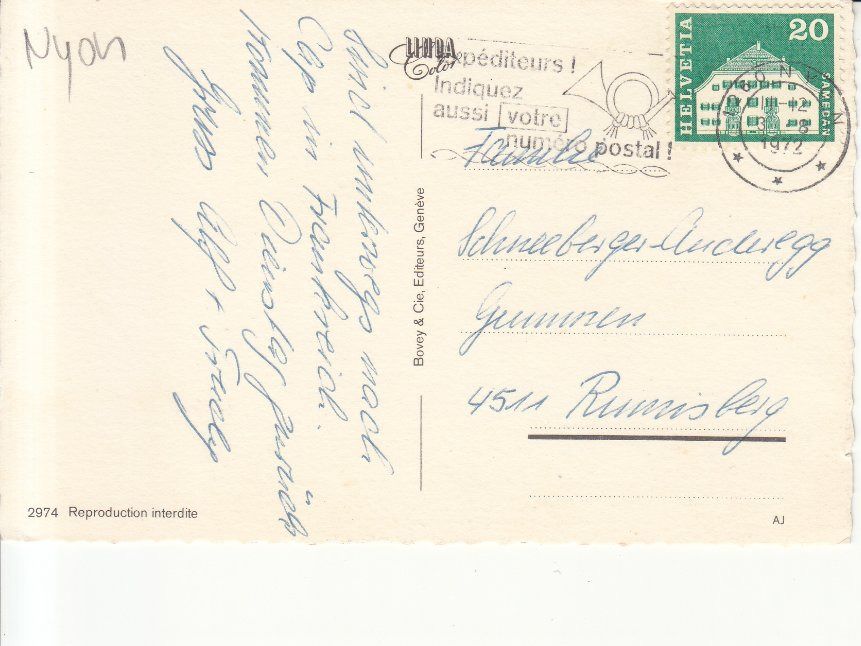 Nyon
LINDA
Color
Expéditeurs !
Indiquez
aussi votre
numéro postal !
HELVETIA
20
SAMEDAN
1972
Sind unterwegs nach
Cap in Frankreich.
Kommen Dienstag zurück
Gruss
+ Trudy
Familie
Schneeberger-Anderegg
Gummen
4511 Rumisberg
Bovey & Cie, Editeurs, Genève
2974 Reproduction interdite
AJ